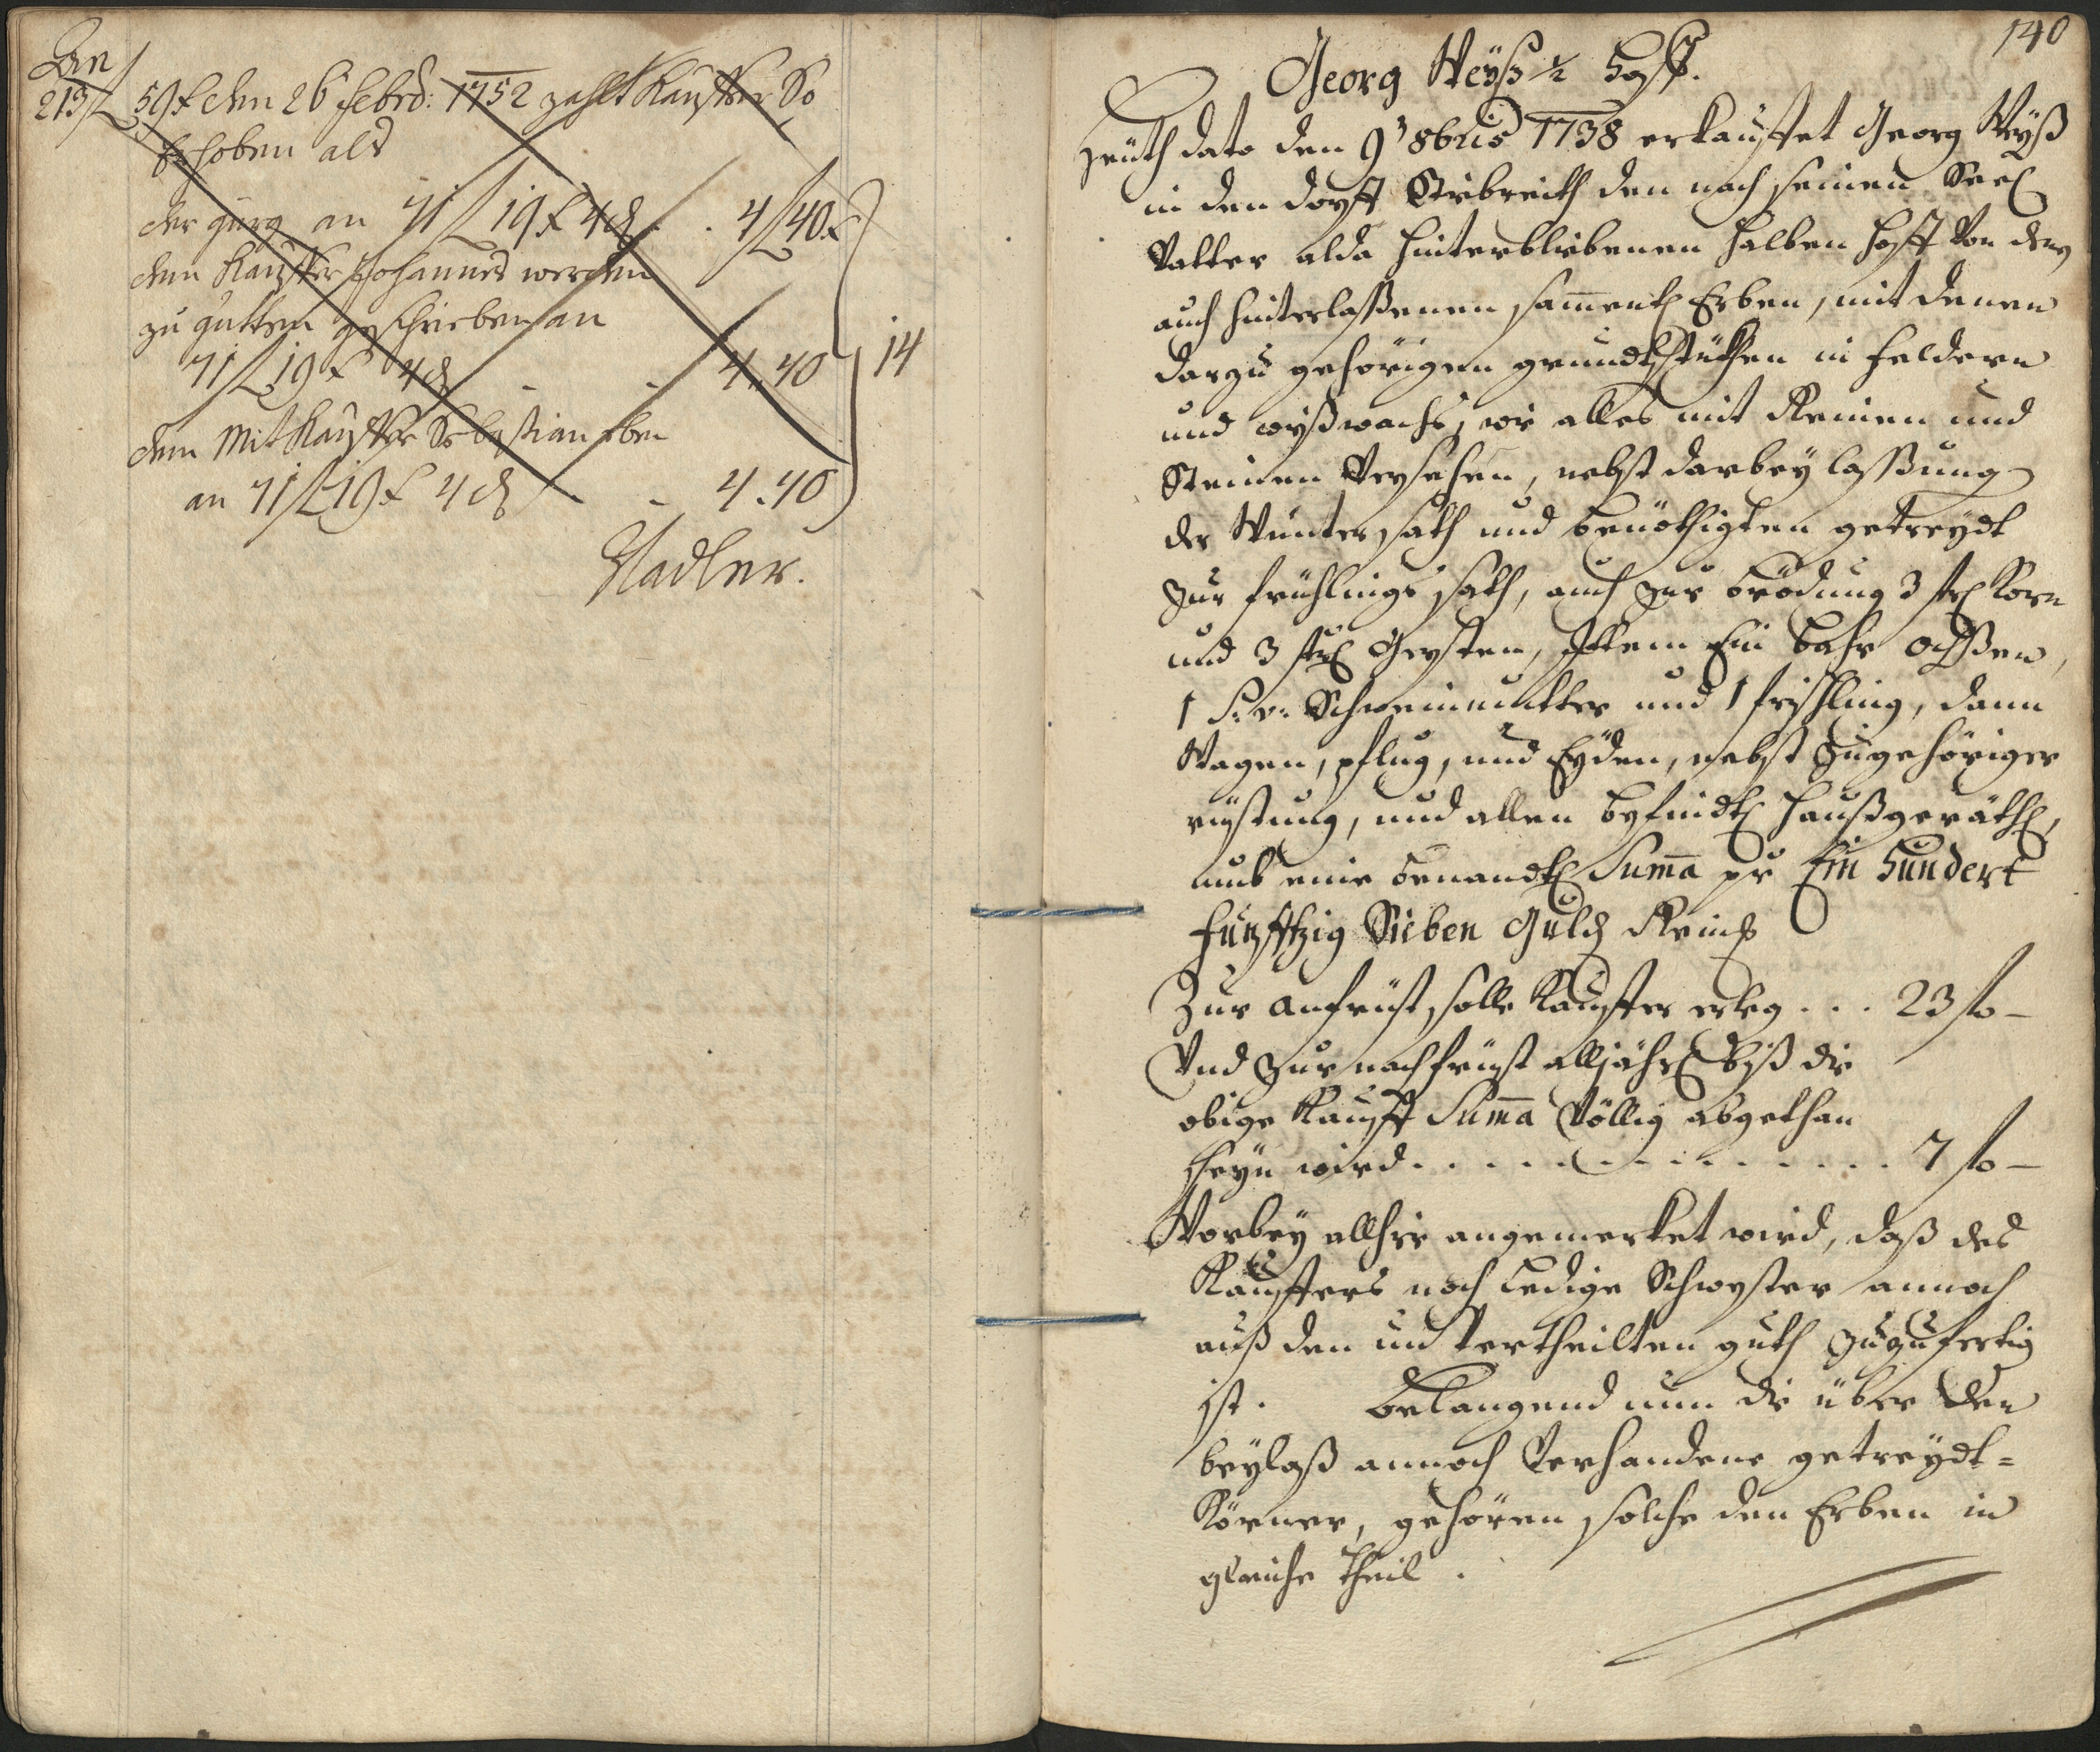 An
213 f 59 x den 26 Febrd: 1752 zahlt Kauffer So
Erhoben als
der Jurg an 71 f 19 x 4 d . . 4 f 40 x
dem Kauffer Johannes werden
zu gutten geschrieben an
71 f 19 x 4 d - - 4. 40 14
dem Mit Kauffer Sebastian eben
an 71 f 19 x 4 d - 4. 40
Stadler.
140
Georg Weyß ½ Hoff.
Heüth dato den 9 8bris 1738 erkauffet Georg Weyß
in den dorff den nach seinen Seel
Vatter alda hinterbliebenen halben Hoff von deren
auch hinterlaßenen sament Erben, mit denen
darzu gehörigen grundtstükhen in Feldern
und wyßwachs, wie alles mit Reinen und
Steinen Versehen, nebst darbey laßung
der Wünter sath und benöthigten getreydt
zur frühlings sath, auch zur brödung 3 str Korn
und 3 str Gersten, Ittem Ein bahr oxßen,
1 S: v: Schweinmutter und 1 frischling, dann
Wagen, pflug, und Eyden, nebst zugehöriger
rüstung, und allen befindt haußgeräth,
umb eine benandt Suma pr Ein Hundert
Funfftzig Sieben Guld Reinß
Zur anfrist solle Kauffer erleg . . . 23 fo -
Und zur nachfrist alljährl biß die
obige Kauff Suma Völlig abgethan
seyn wird . . . . . . . . . . . . 7 fo -
Worbey allhie angemerket wird, daß des
Kauffers noch ledige Schwester annoch
auß den un Vertheilten guth zuzufertig
ist. belangend nun die über den
beylaß annoch Verhandene getreydt=
Körner, gehören solche den Erben in
gleiche theil.